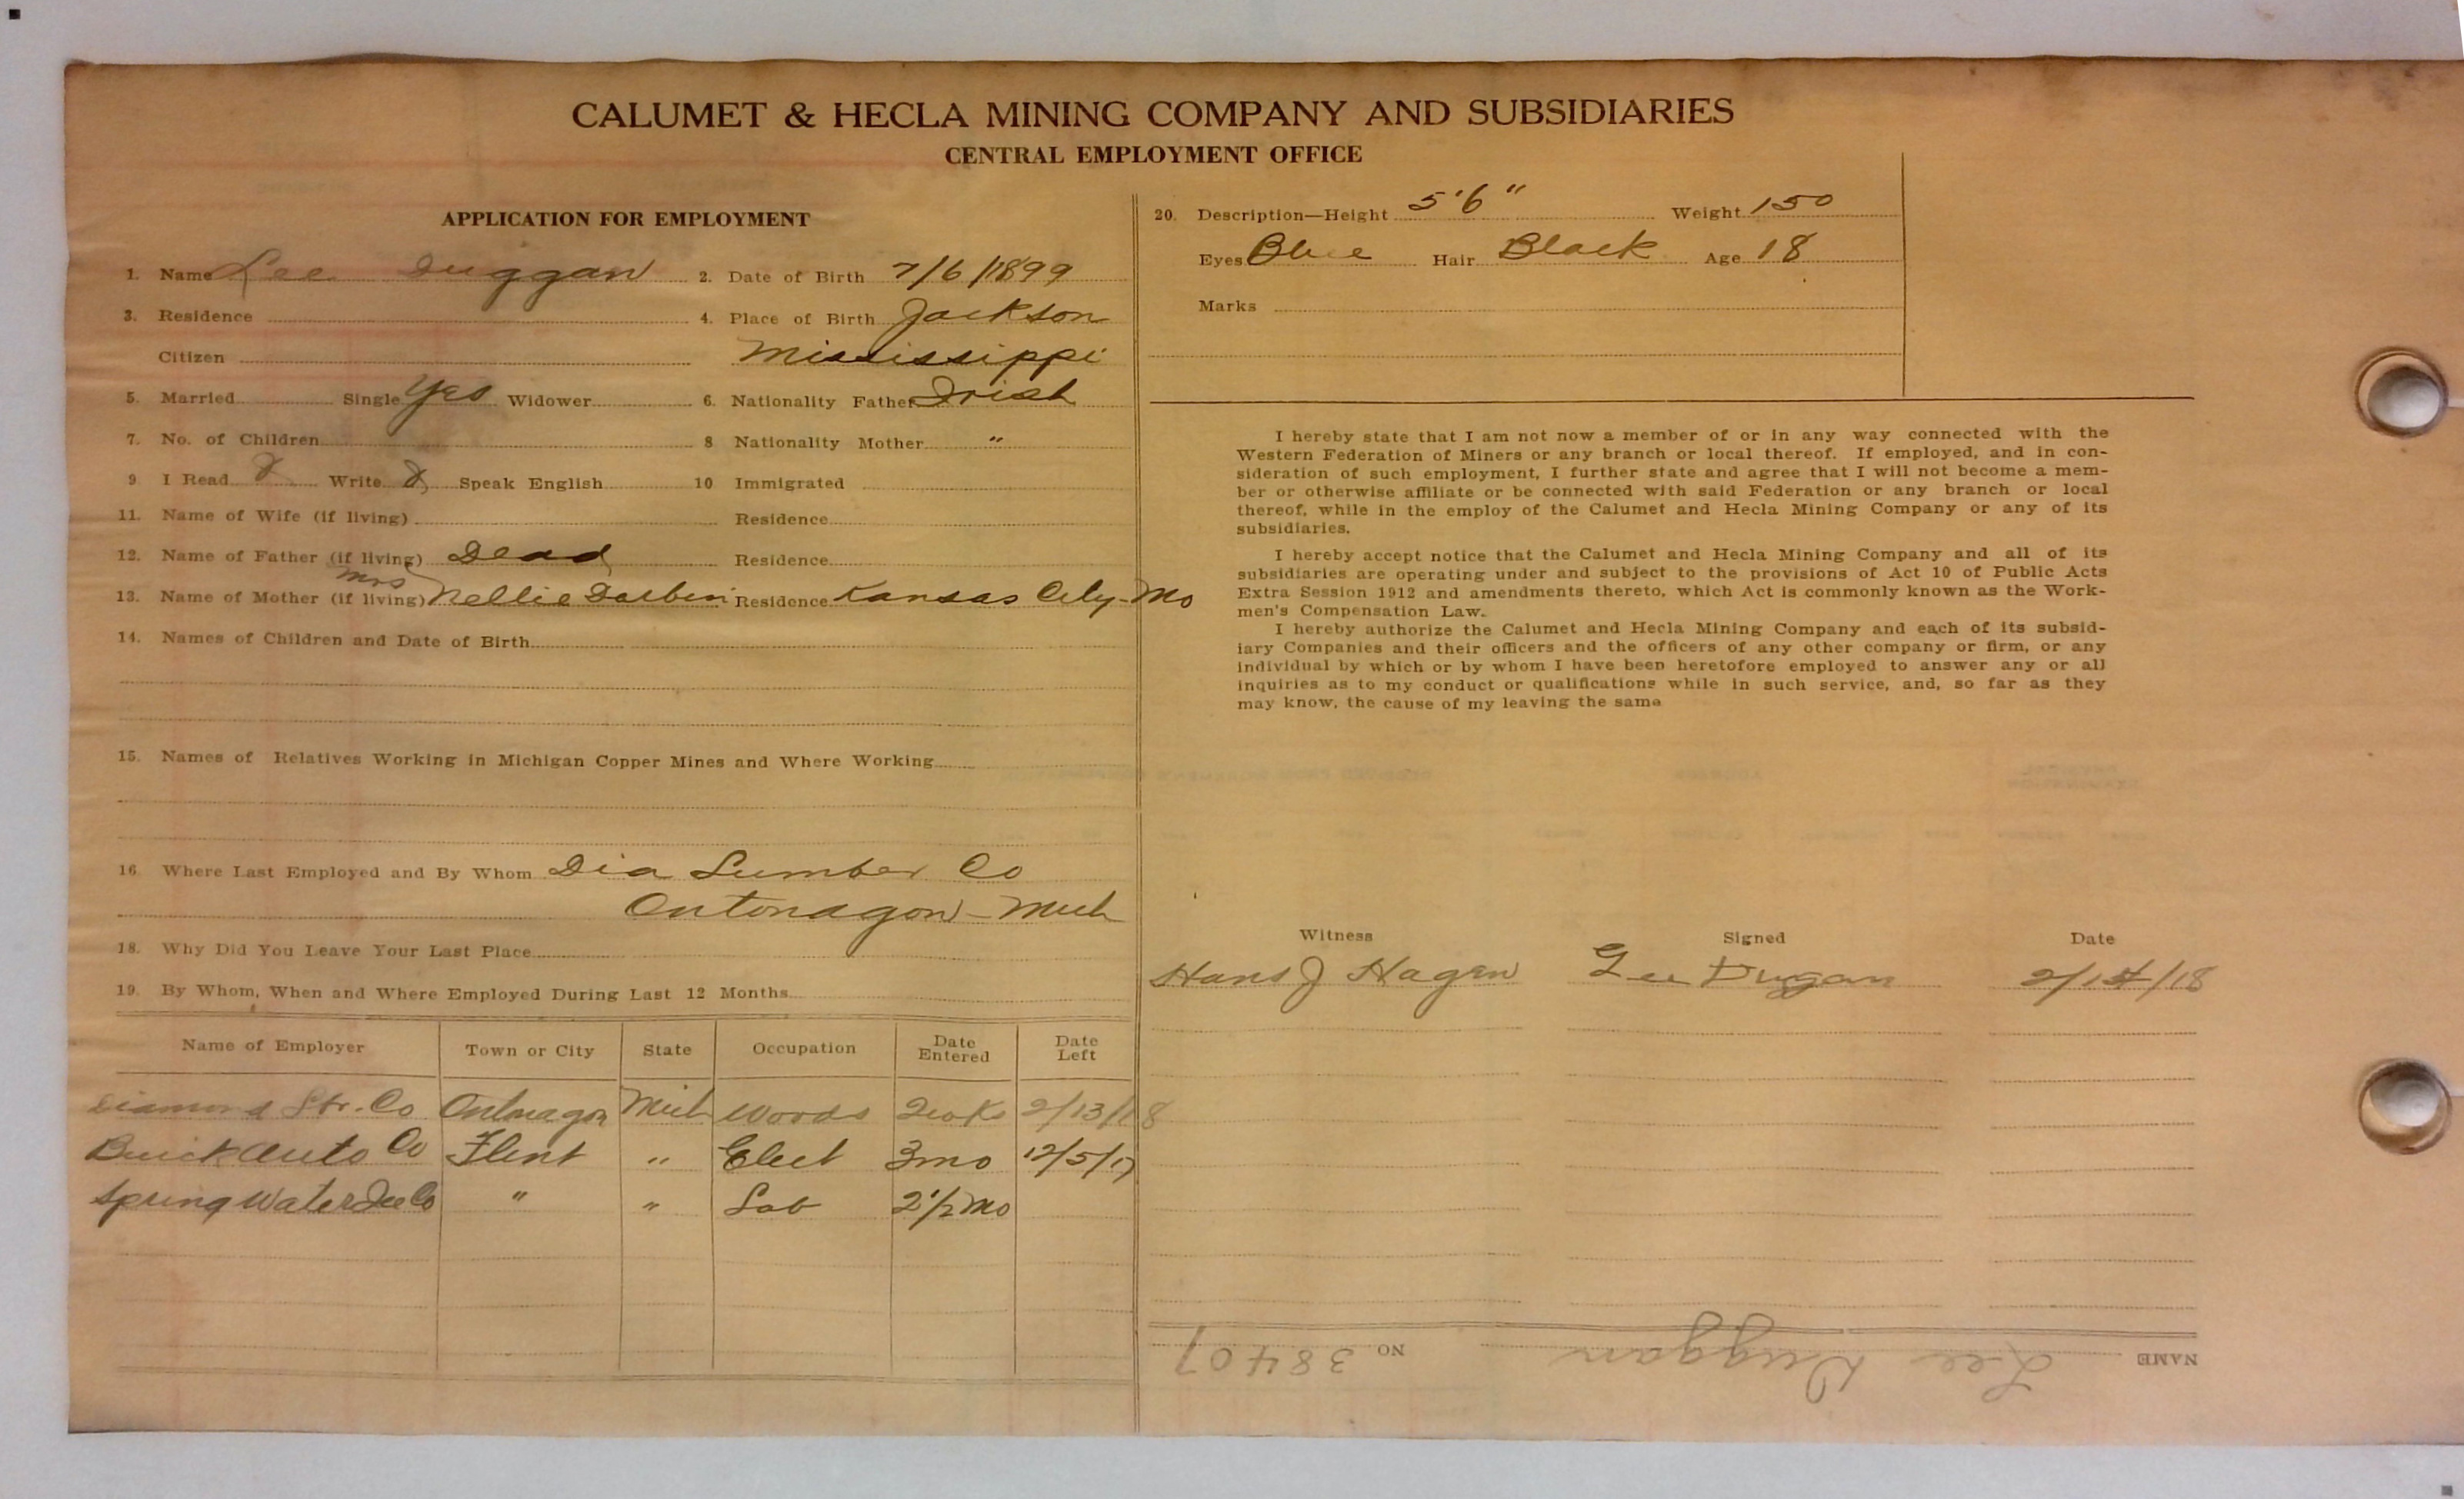 CALUMET & HECLA MINING COMPANY AND SUBSIDIARIES
CENTRAL EMPLOYMENT OFFICE
APPLICATION FOR EMPLOYMENT
1. Name Lee Duggan 2. Date of Birth 7/6/1899
3. Residence 4. Place of Birth Jackson
Citizen Mississippi
5. Married Single Yes Widower 6. Nationality Father Irish
7. No. of Children 8 Nationality Mother "
9 I Read Write Speak English 10 Immigrated
11. Name of Wife (if living) Residence
12. Name of Father (if living) Dead Residence
13. Name of Mother (if living) Mrs Nellie Residence Kansas City-Mo
14. Names of Children and Date of Birth
15. Names of Relatives Working in Michigan Copper Mines and Where Working
16 Where Last Employed and By Whom Dia Lumber Co
Ontonagon - Mich
18. Why Did You Leave Your Last Place
19. By Whom, When and Where Employed During Last 12 Months
Name of Employer Town or City State Occupation Date Entered Date Left
Diamond Lbr. Co Ontonagon Mich Woods 2/13/18
Buick Auto Co Flint " Elect 3mo 12/5/17
Spring Water Ice Co " " Lab 2 1/2 Mo
20. Description—Height 5'6" Weight 150
Eyes Blue Hair Black Age 18
Marks
I hereby state that I am not now a member of or in any way connected with the
Western Federation of Miners or any branch or local thereof. If employed, and in con-
sideration of such employment, I further state and agree that I will not become a mem-
ber or otherwise affiliate or be connected with said Federation or any branch or local
thereof, while in the employ of the Calumet and Hecla Mining Company or any of its
subsidiaries.
I hereby accept notice that the Calumet and Hecla Mining Company and all of its
subsidiaries are operating under and subject to the provisions of Act 10 of Public Acts
Extra Session 1912 and amendments thereto, which Act is commonly known as the Work-
men's Compensation Law.
I hereby authorize the Calumet and Hecla Mining Company and each of its subsid-
iary Companies and their officers and the officers of any other company or firm, or any
individual by which or by whom I have been heretofore employed to answer any or all
inquiries as to my conduct or qualifications while in such service, and, so far as they
may know, the cause of my leaving the same
Witness Signed Date
Hans J Hagen Lee Duggan
NAME Lee Duggan NO 38407